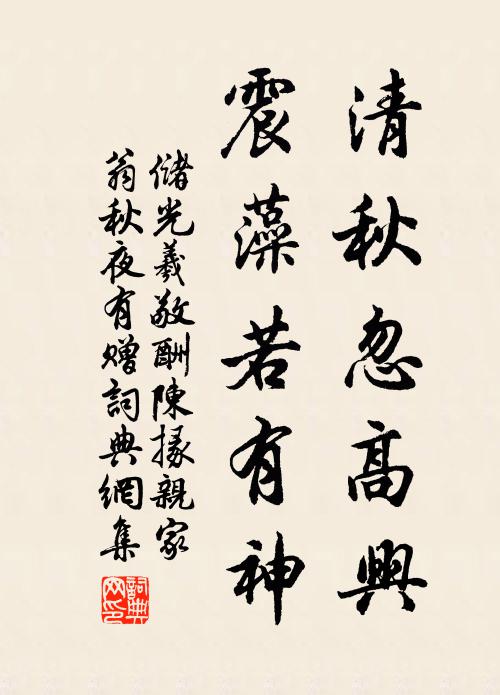 清秋忽高興
震藻若有神
儲光羲敬酬陳掾親家
翁秋夜有贈詞典網集
詞典網印